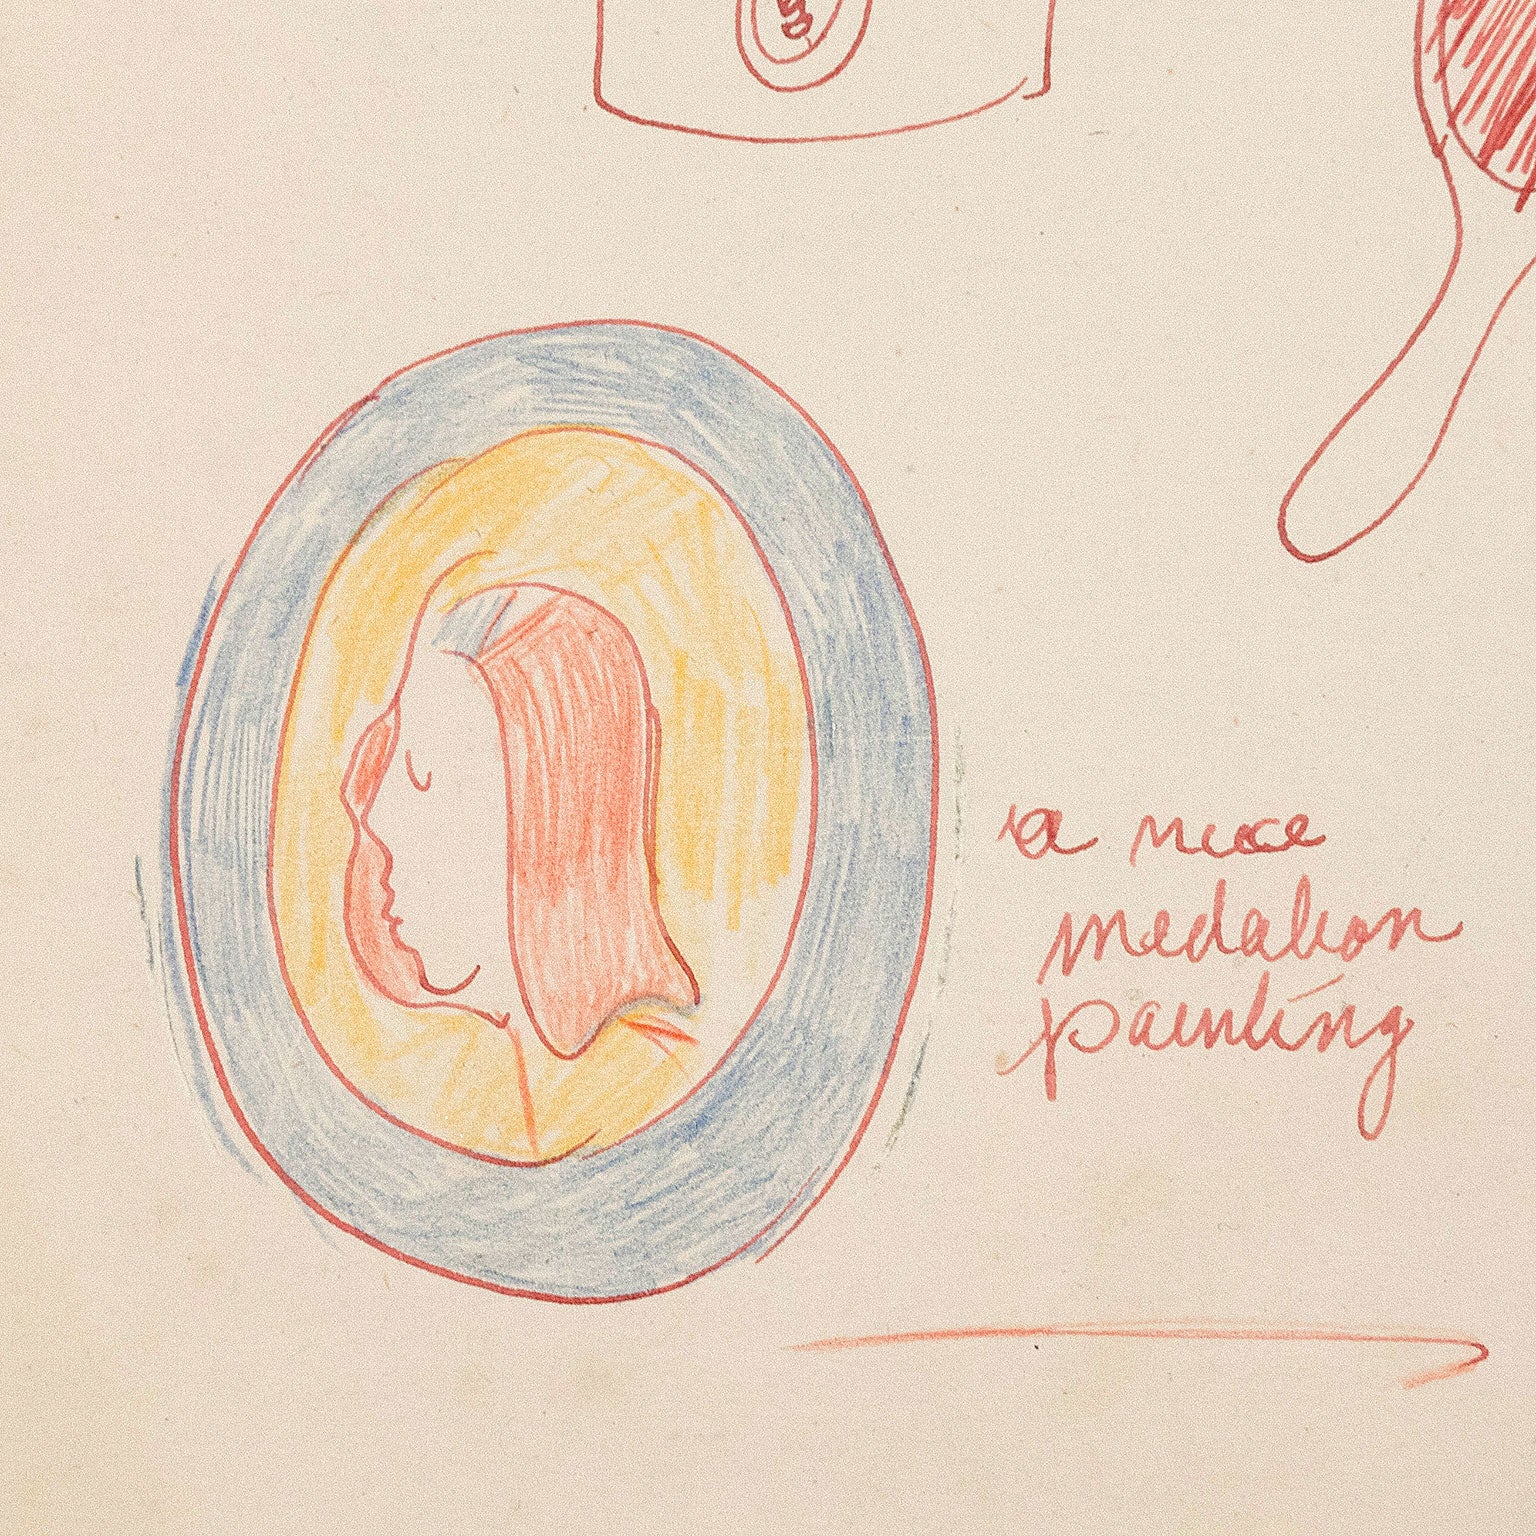 a nice
medalion
painting